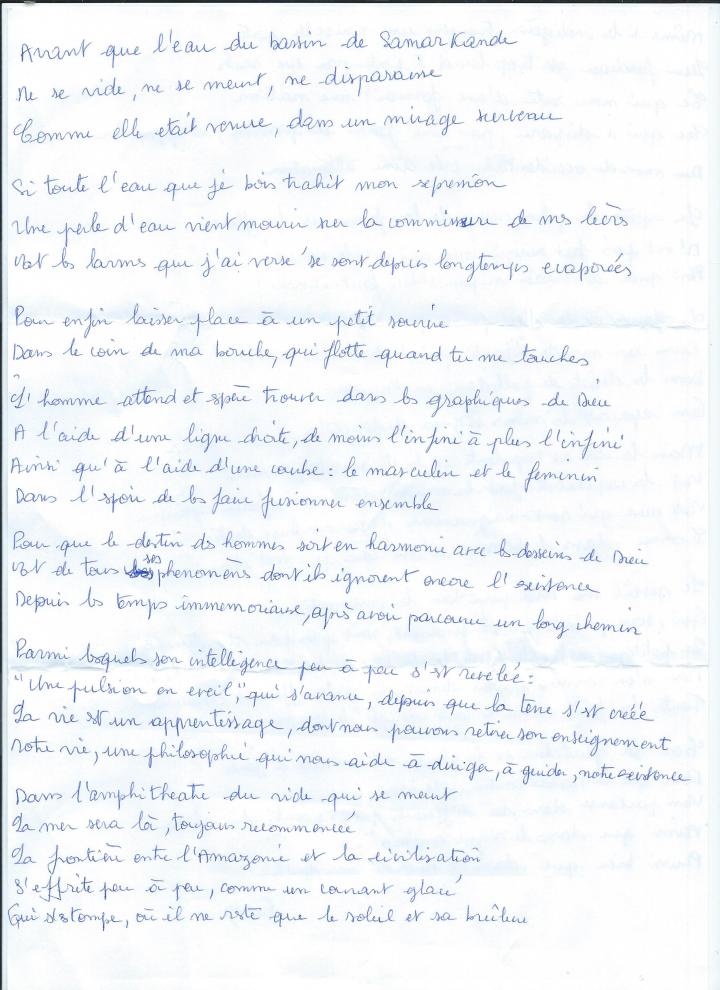 Avant que l'eau du bassin de Samarkande
Ne se vide, ne se meurt, ne disparaisse
Comme elle etait venue, dans un mirage nouveau
Si toute l'eau que je bois trahit mon
Une perle d'eau vient mourir sur la commissure de mes lèvres
Et les larmes que j'ai versé se sont depuis longtemps evaporées
Pour enfin laisser place à un petit sourire
Dans le coin de ma bouche, qui flotte quand tu me touches
L'homme attend et espère trouver dans les graphiques de Dieu
A l'aide d'une ligne droite, de moins l'infini à plus l'infini
Ainsi qu'à l'aide d'une courbe : le masculin et le feminin
Dans l'espoir de les faire fusionner ensemble
Pour que le destin des hommes soit en harmonie avec les desseins de Dieu
Et de tous ses phenomènes dont ils ignorent encore l'existence
Depuis les temps immemoriaux, après avoir parcouru un long chemin
Parmi lesquels son intelligence peu à peu s'est revelée :
"Une pulsion en eveil," qui s'avance, depuis que la terre s'est créée
La vie est un apprentissage, dont nous pouvons retirer son enseignement
Notre vie, une philosophie qui nous aide à diriger, à guider, notre existence
Dans l'amphitheatre du vide qui se meurt
La mer sera là, toujours recommencée
La frontière entre l'Amazonie et la civilisation
S'effrite peu à peu, comme un courant glacé
Qui s'estompe, où il ne reste que le soleil et sa brûlure